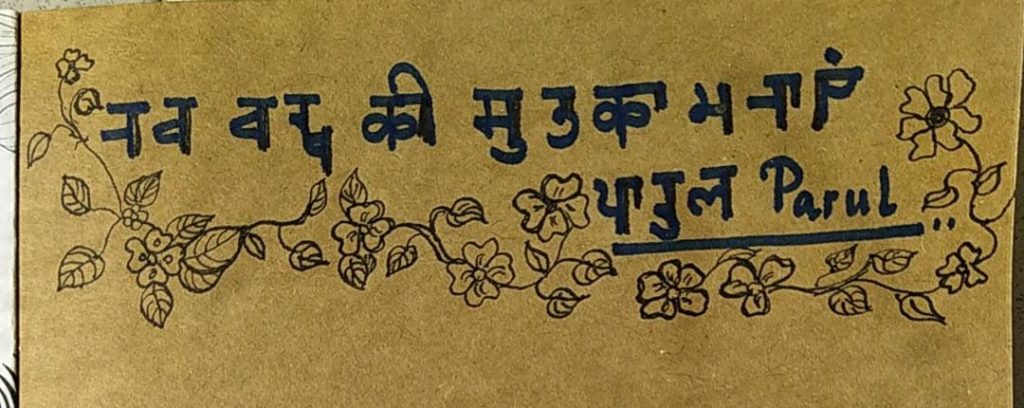 नव वर्ष की शुभकामनाएं
पारुल Parul ..